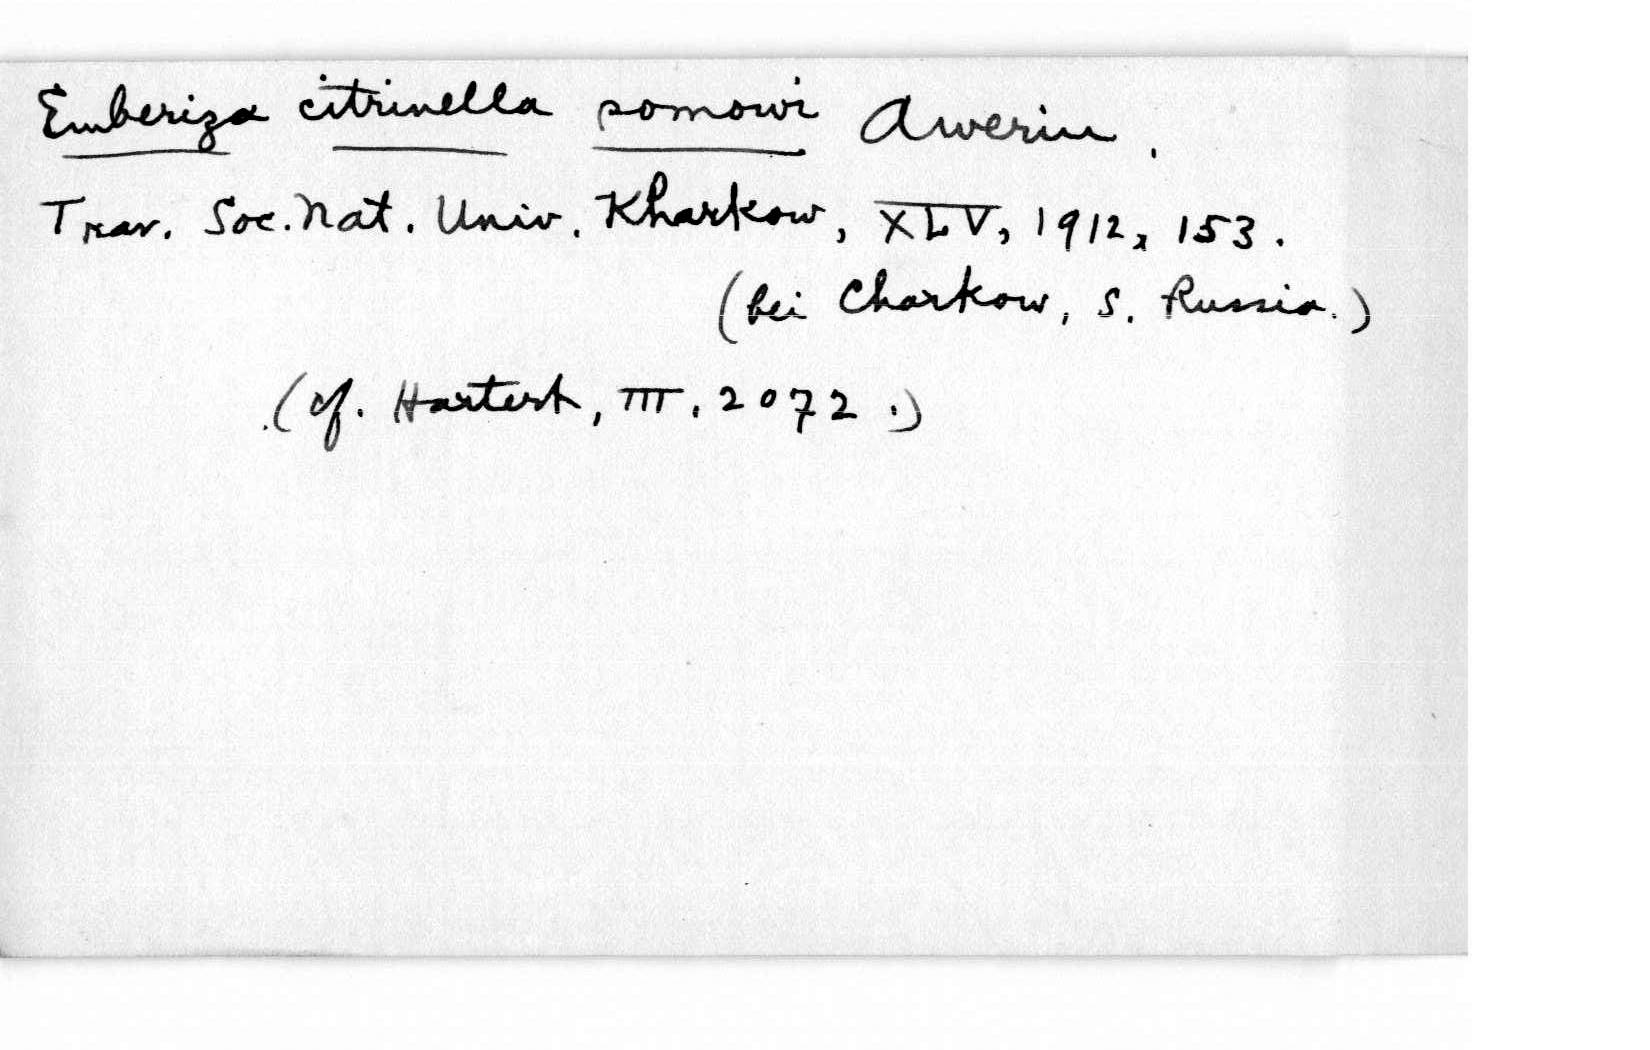 Emberiza citrinella somowi Awerin.
Trav. Soc. Nat. Univ. Kharkow, XLV, 1912, 153.
(bei Charkow, S. Russia.)
(cf. Hartert, III, 2072.)